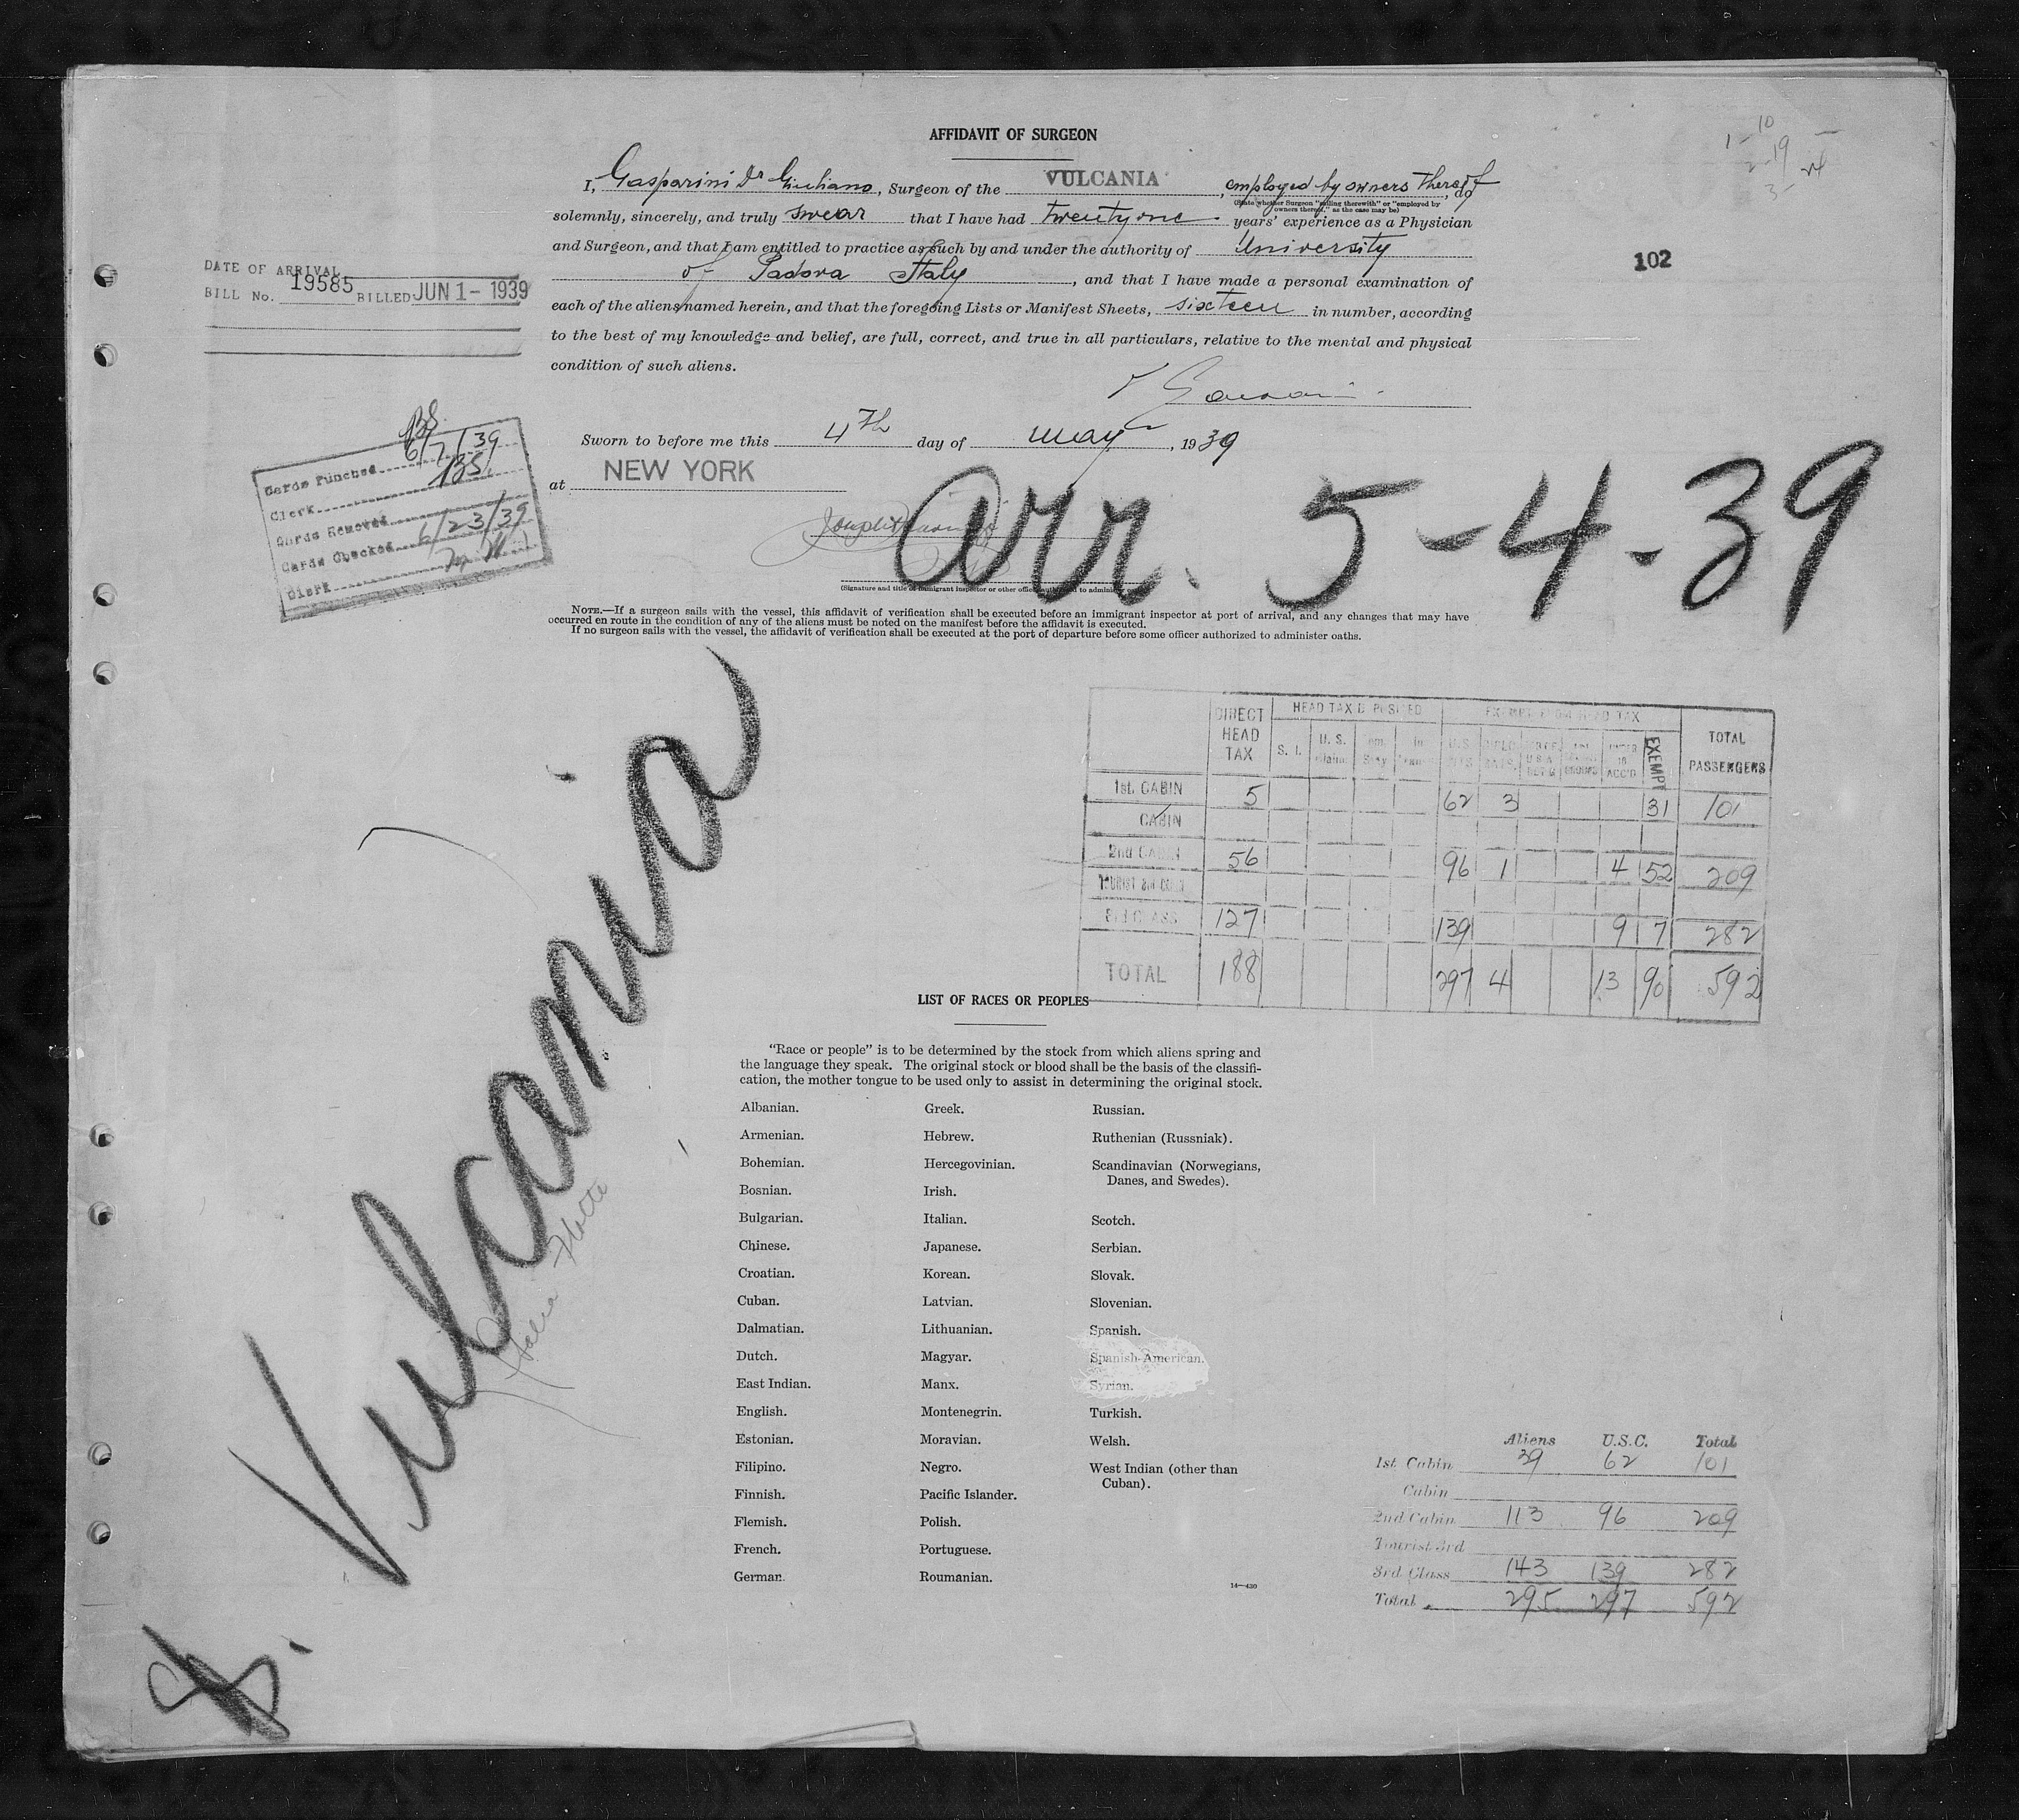 AFFIDAVIT OF SURGEON
I, Gasparini Dr Giuliano, Surgeon of the VULCANIA, employed by owners thereof, do
(State whether Surgeon "sailing therewith" or "employed by owners thereof," as the case may be)
solemnly, sincerely, and truly swear that I have had twenty one years' experience as a Physician
and Surgeon, and that I am entitled to practice as such by and under the authority of University
of Padova Italy, and that I have made a personal examination of
each of the aliens named herein, and that the foregoing Lists or Manifest Sheets, sixteen in number, according
to the best of my knowledge and belief, are full, correct, and true in all particulars, relative to the mental and physical
condition of such aliens.
1-10
2-19
3-24
102
DATE OF ARRIVAL
BILL No. 19585 BILLED JUN 1 - 1939
Cards Punched 6/7/39
Clerk BS
Cards Removed
Cards Checked 6/23/39
Clerk
Sworn to before me this 4th day of May, 1939
at NEW YORK
arr. 5-4-39
(Signature and title of immigrant inspector or other officer authorized to administer
NOTE.—If a surgeon sails with the vessel, this affidavit of verification shall be executed before an immigrant inspector at port of arrival, and any changes that may have
occurred en route in the condition of any of the aliens must be noted on the manifest before the affidavit is executed.
If no surgeon sails with the vessel, the affidavit of verification shall be executed at the port of departure before some officer authorized to administer oaths.
Vulcania
DIRECT HEAD TAX HEAD TAX DEPOSITED EXEMPT FROM HEAD TAX TOTAL PASSENGERS
S. I. U. S. EXEMPT
1st. CABIN 5 62 3 31 101
CABIN
2nd CABIN 56 96 1 4 52 209
TOURIST 3rd CABIN
3rd CLASS 127 139 9 7 282
TOTAL 188 297 4 13 90 592
LIST OF RACES OR PEOPLES
"Race or people" is to be determined by the stock from which aliens spring and
the language they speak. The original stock or blood shall be the basis of the classifi-
cation, the mother tongue to be used only to assist in determining the original stock.
Albanian.
Armenian.
Bohemian.
Bosnian.
Bulgarian.
Chinese.
Croatian.
Cuban.
Dalmatian.
Dutch.
East Indian.
English.
Estonian.
Filipino.
Finnish.
Flemish.
French.
German.
Greek.
Hebrew.
Hercegovinian.
Irish.
Italian.
Japanese.
Korean.
Latvian.
Lithuanian.
Magyar.
Manx.
Montenegrin.
Moravian.
Negro.
Pacific Islander.
Polish.
Portuguese.
Roumanian.
Russian.
Ruthenian (Russniak).
Scandinavian (Norwegians,
Danes, and Swedes).
Scotch.
Serbian.
Slovak.
Slovenian.
Spanish.
Spanish-American.
Syrian.
Turkish.
Welsh.
West Indian (other than
Cuban).
14—430
Aliens U.S.C. Total
1st Cabin 39 62 101
Cabin
2nd Cabin 113 96 209
Tourist 3rd
3rd Class 143 139 282
Total 295 297 592